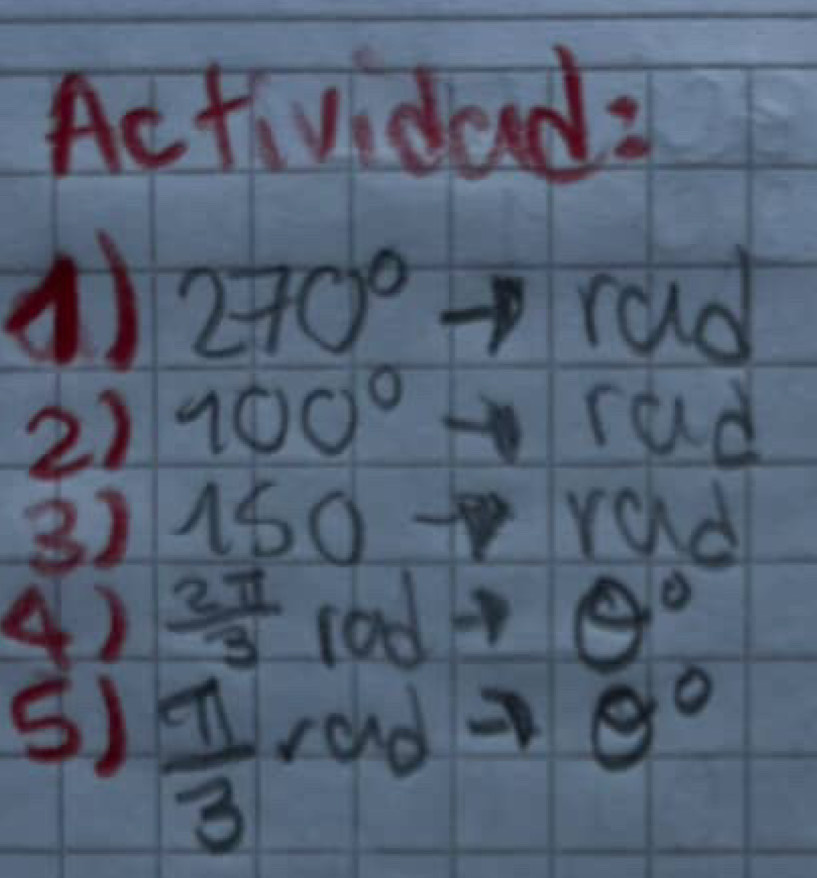 Actividad:
1) 270° → rad
2) 100° → rad
3) 150 → rad
4) 2π/3 rad → θ°
5) π/3 rad → θ°